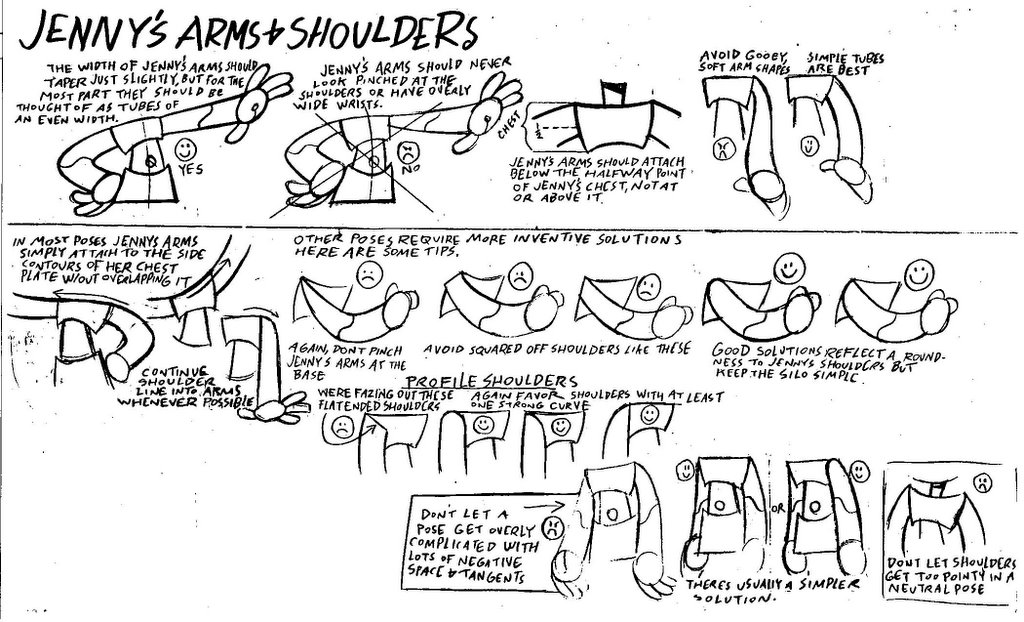 JENNY'S ARMS & SHOULDERS
THE WIDTH OF JENNY'S ARMS SHOULD
TAPER JUST SLIGHTLY, BUT FOR THE
MOST PART THEY SHOULD BE
THOUGHT OF AS TUBES OF
AN EVEN WIDTH.
YES
JENNY'S ARMS SHOULD NEVER
LOOK PINCHED AT THE
SHOULDERS OR HAVE OVERLY
WIDE WRISTS.
NO
CHEST
1/2
JENNY'S ARMS SHOULD ATTACH
BELOW THE HALFWAY POINT
OF JENNY'S CHEST, NOT AT
OR ABOVE IT.
AVOID GOOEY,
SOFT ARM SHAPES
SIMPLE TUBES
ARE BEST
IN MOST POSES JENNY'S ARMS
SIMPLY ATTACH TO THE SIDE
CONTOURS OF HER CHEST
PLATE W/OUT OVERLAPPING IT
CONTINUE
SHOULDER
LINE INTO ARMS
WHENEVER POSSIBLE
OTHER POSES REQUIRE MORE INVENTIVE SOLUTIONS
HERE ARE SOME TIPS.
AGAIN, DON'T PINCH
JENNY'S ARMS AT THE
BASE
AVOID SQUARED OFF SHOULDERS LIKE THESE
GOOD SOLUTIONS REFLECT A ROUND-
NESS TO JENNY'S SHOULDERS BUT
KEEP THE SILO SIMPLE.
PROFILE SHOULDERS
WERE FAZING OUT THESE
FLATENDED SHOULDERS
AGAIN FAVOR SHOULDERS WITH AT LEAST
ONE STRONG CURVE
DON'T LET A
POSE GET OVERLY
COMPLICATED WITH
LOTS OF NEGATIVE
SPACE & TANGENTS
OR
THERES USUALLY A SIMPLER
SOLUTION.
DONT LET SHOULDERS
GET TOO POINTY IN A
NEUTRAL POSE